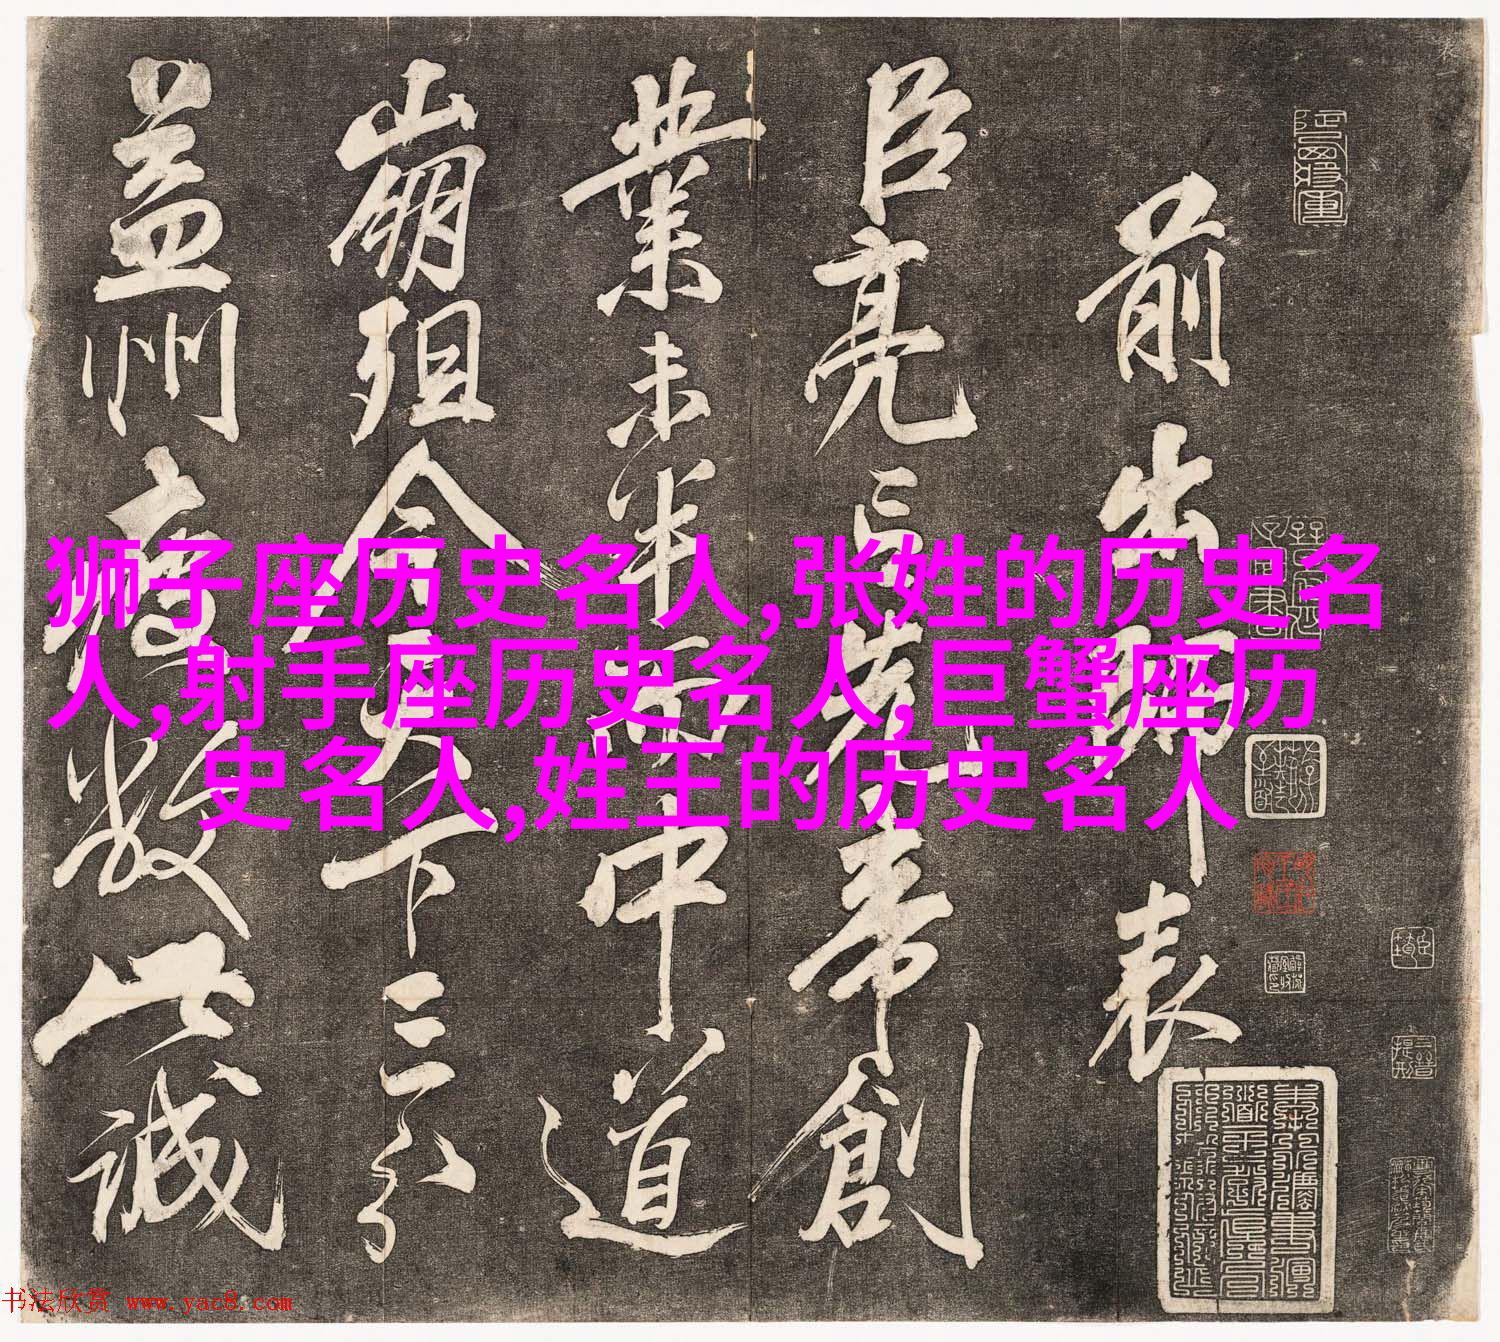 前出師表
臣亮言先帝創
業未半而中道
崩殂今天下三分
益州疲敝此誠
狮子座历史名人,张姓的历史名
人,射手座历史名人,巨蟹座历
史名人,姓王的历史名人
三晉提刑
书法欣赏 www.yac8.com